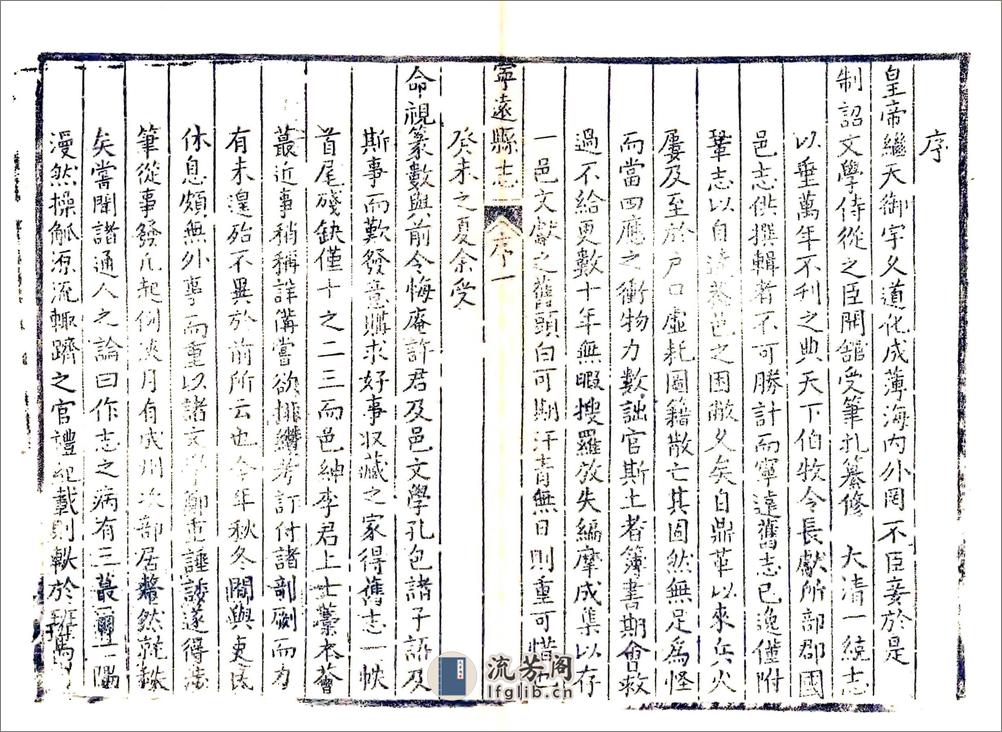 序
皇帝繼天御宇久道化成薄海內外罔不臣妾於是
制詔文學侍從之臣開舘受筆札纂修 大清一統志
以垂萬年不刋之典天下伯牧令長獻所部郡國
邑志供撰輯者不可勝計而寧遠舊志已逸僅附
鞏志以自達茲邑之困敝久矣自鼎革以來兵火
屢及至於戶口虛耗圖籍散亡其固然無足爲怪
而當四應之衝物力數詘官斯土者簿書期會救
過不給更數十年無暇搜羅放失編摩成集以存
一邑文獻之舊頭白可期汗青無日則重可惜
寧遠縣志 序 一
癸未之夏余受
命視篆數與前令悔庵許君及邑文學孔包諸子語及
斯事而歎發意購求好事収藏之家得舊志一帙
首尾殘缺僅十之二三而邑紳李君上士藁本薈
蕞近事稍稱詳俻嘗欲排纘考訂付諸剞劂而力
有未遑殆不異於前所云也今年秋冬間與吏民
休息頗無外事而重以諸文學鄭重諈諉遂得
筆從事發凡起例浹月有成州次部居犛然就秩
矣嘗聞諸通人之論曰作志之病有三蕞爾一隅
漫然操觚源流輒躋之官禮紀載則軼於班馬